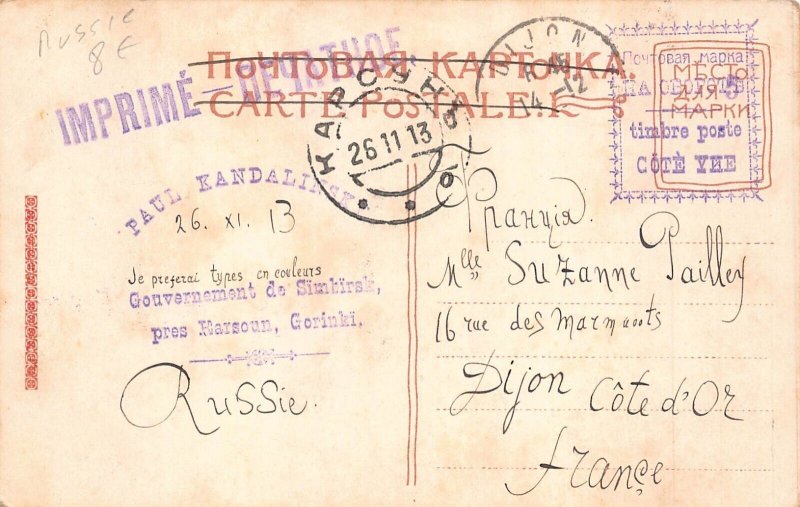 Russie
8 €
ПОЧТОВАЯ КАРТОЧКА.
CARTE POSTALE.
IMPRIMÉ — ПЕЧАТНОЕ.
КАРСУНЪ
26 11 13
DIJON
14 -12
Почтовая марка
НА ОБОРОТѢ
timbre poste
CÔTÉ VUE
МѢСТО
ДЛЯ
МАРКИ
PAUL KANDALINSKY
26. XI. 13
Je preferai types en couleurs
Gouvernement de Simbirsk,
pres Karsoun, Gorinki.
Russie.
Франція.
Mlle Suzanne Pailley
16 rue des Marmuots
Dijon Côte d'Or
France